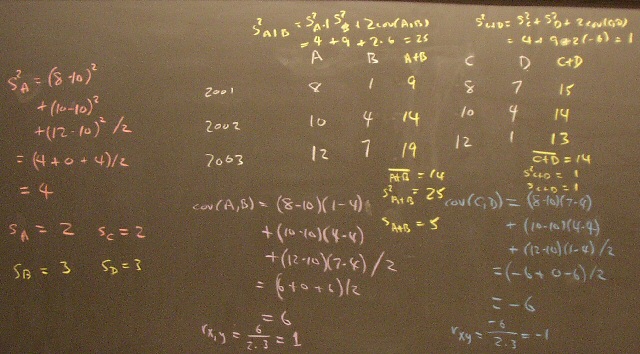 S²A+B = S²A + S²B + 2cov(A,B)
= 4 + 9 + 2·6 = 25
S²C+D = S²C + S²D + 2cov(C,D)
= 4 + 9 + 2(-6) = 1
A B A+B C D C+D
2001 8 1 9 8 7 15
2002 10 4 14 10 4 14
2003 12 7 19 12 1 13
A+B = 14
S²A+B = 25
SA+B = 5
C+D = 14
S²C+D = 1
SC+D = 1
S²A = (8-10)²
+ (10-10)²
+ (12-10)² / 2
= (4 + 0 + 4)/2
= 4
SA = 2 SC = 2
SB = 3 SD = 3
cov(A,B) = (8-10)(1-4)
+ (10-10)(4-4)
+ (12-10)(7-4) / 2
= (6 + 0 + 6)/2
= 6
rx,y = 6/2·3 = 1
cov(C,D) = (8-10)(7-4)
+ (10-10)(4-4)
+ (12-10)(1-4)/2
= (-6 + 0 - 6)/2
= -6
rxy = -6/2·3 = -1